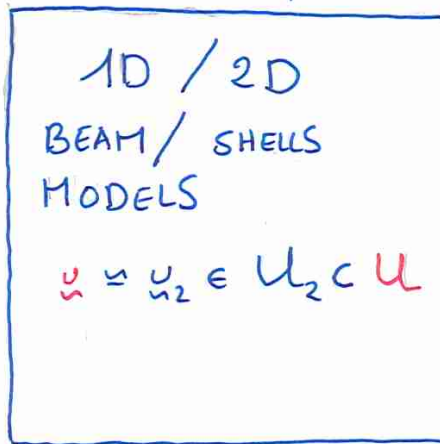 1D / 2D
BEAM / SHELLS
MODELS
u ≃ u₂ ∈ U₂ ⊂ U